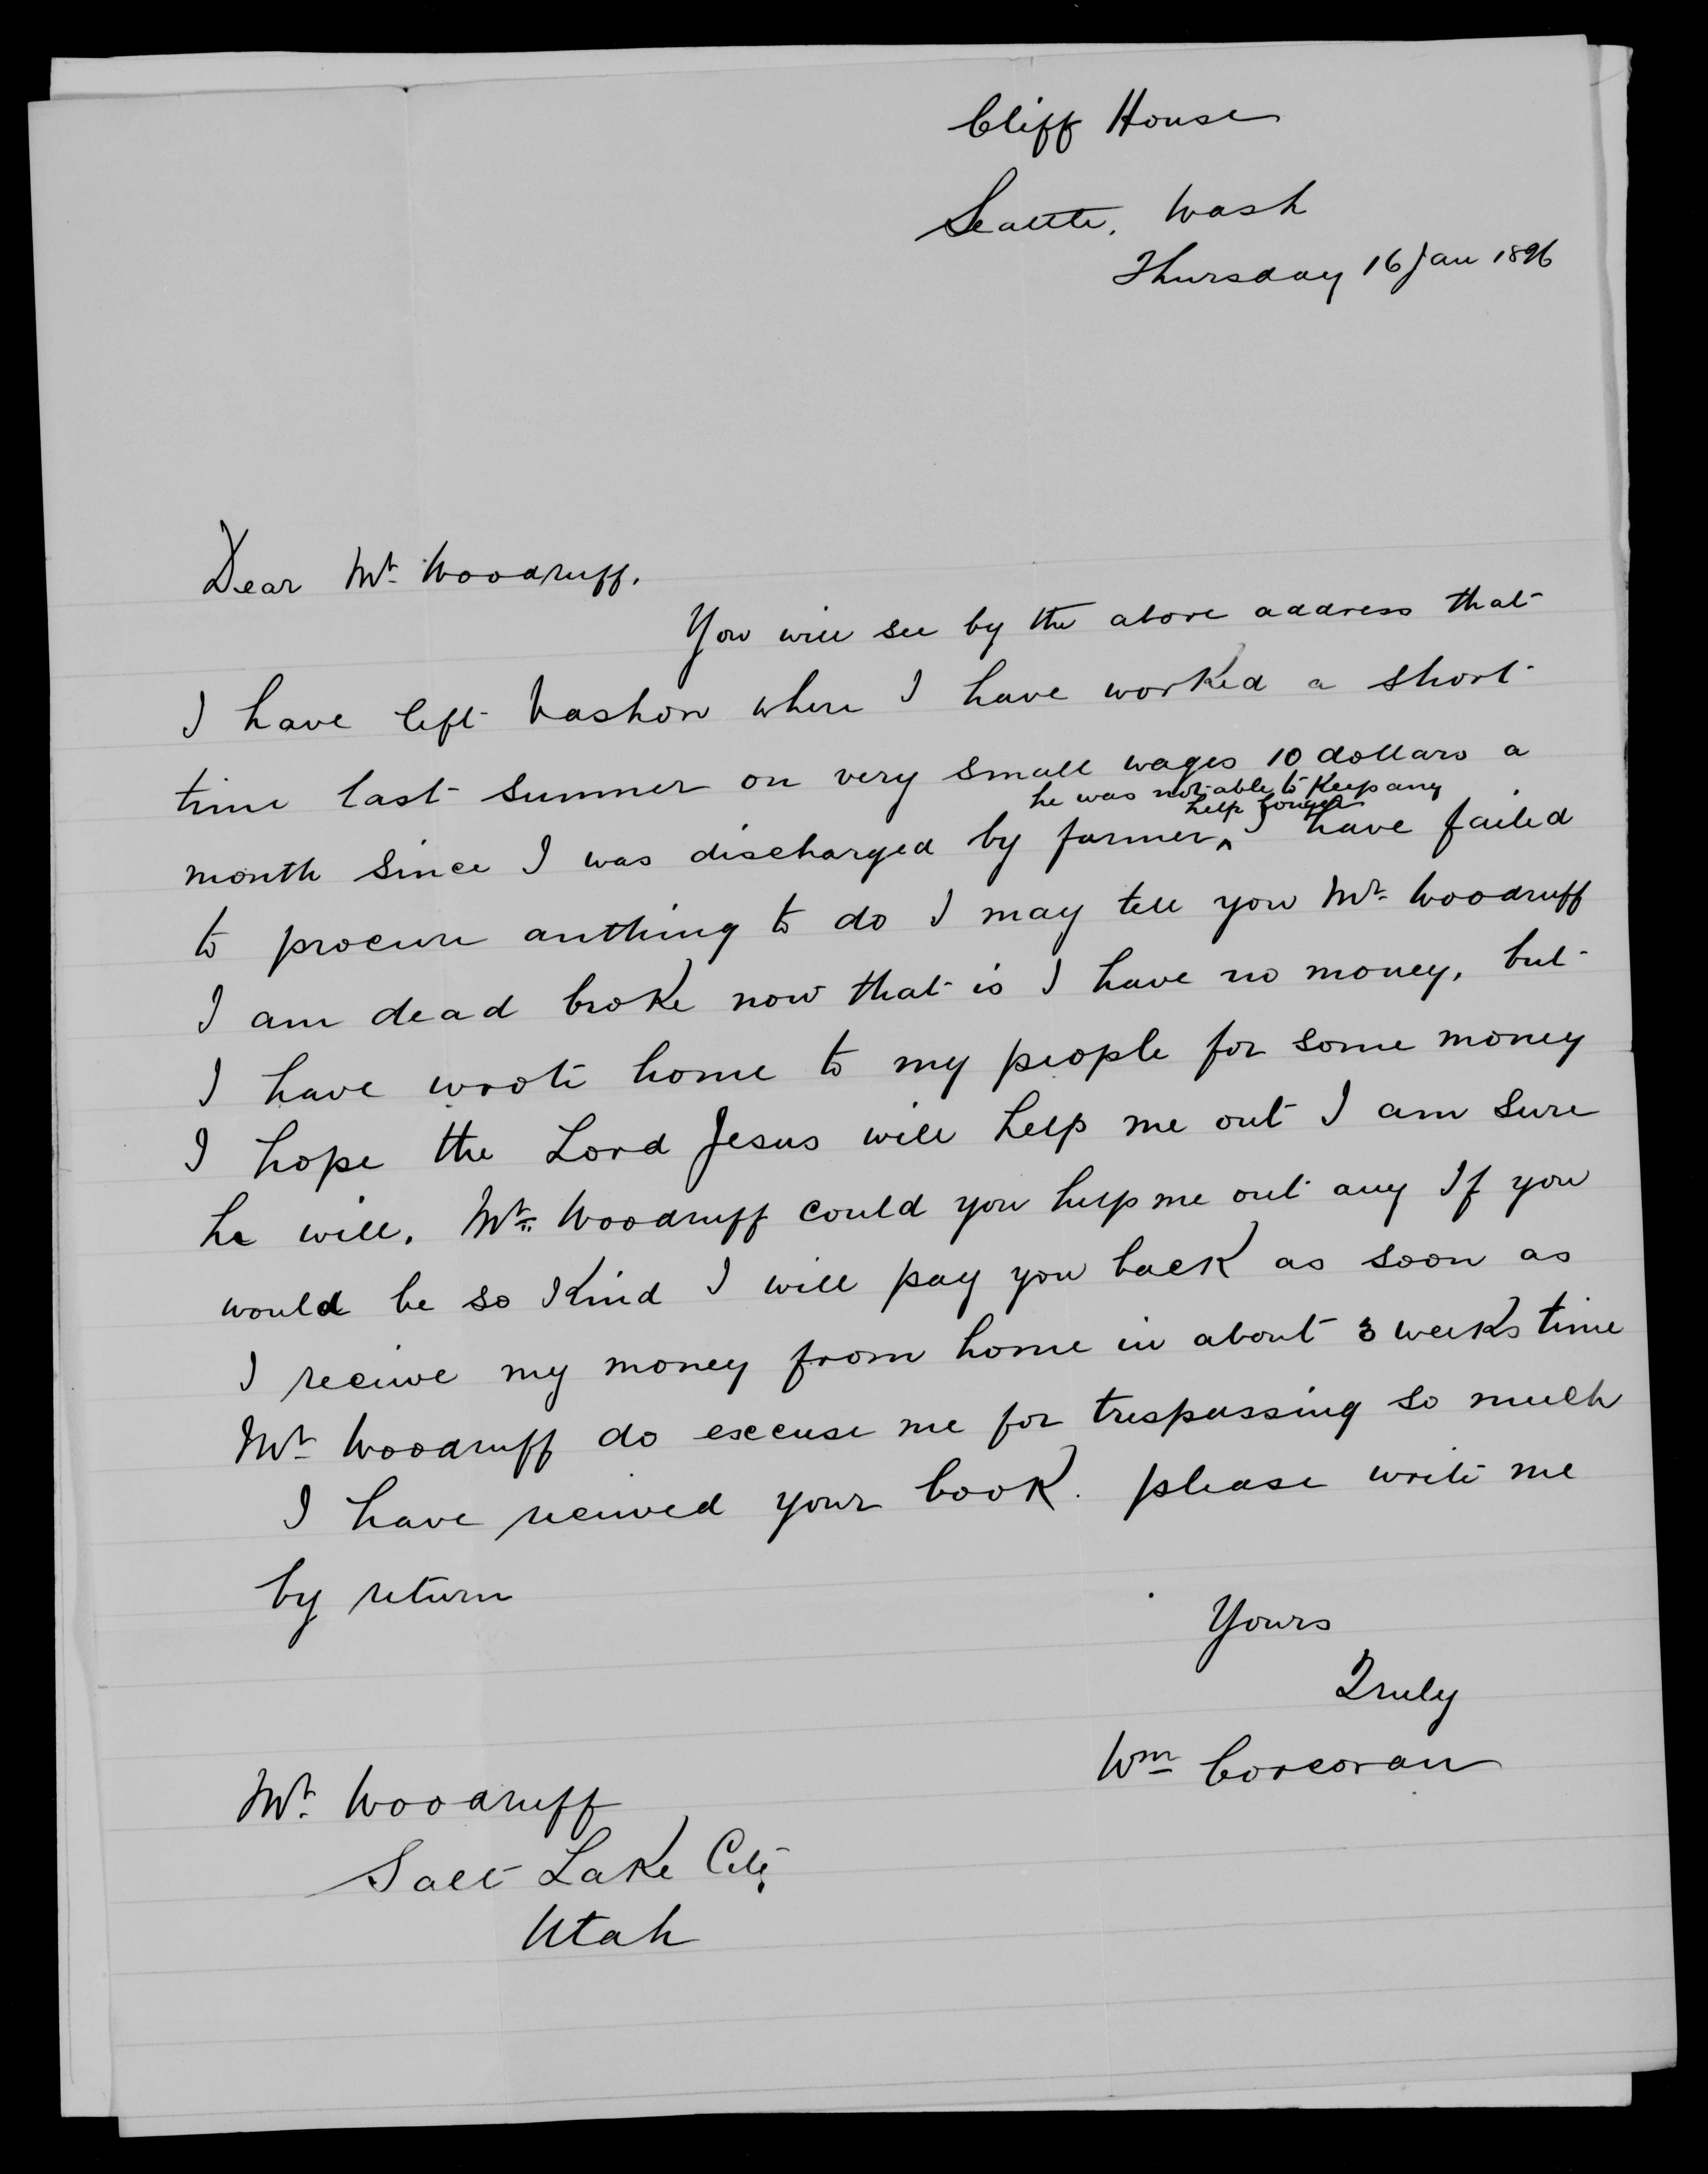 Cliff House
Seattle, Wash
Thursday 16 Jan 1896
Dear Mr Woodruff.
You will see by the above address that
I have left Vashon where I have worked a short
time last summer on very small wages 10 dollars a
he was not able to Keep any
help longer
month since I was discharged by farmer ^ I have failed
to procure anthing to do I may tell you Mr Woodruff
I am dead broke now that is I have no money, but
I have wrote home to my people for some money
I hope the Lord Jesus will help me out I am sure
he will. Mr. Woodruff could you help me out any If you
would be so Kind I will pay you back as soon as
I receive my money from home in about 3 weeks time
Mr Woodruff do excuse me for trespassing so much
I have received your book. please write me
by return
Yours
Truly
Wm Corcoran
Mr. Woodruff
Salt Lake City
Utah